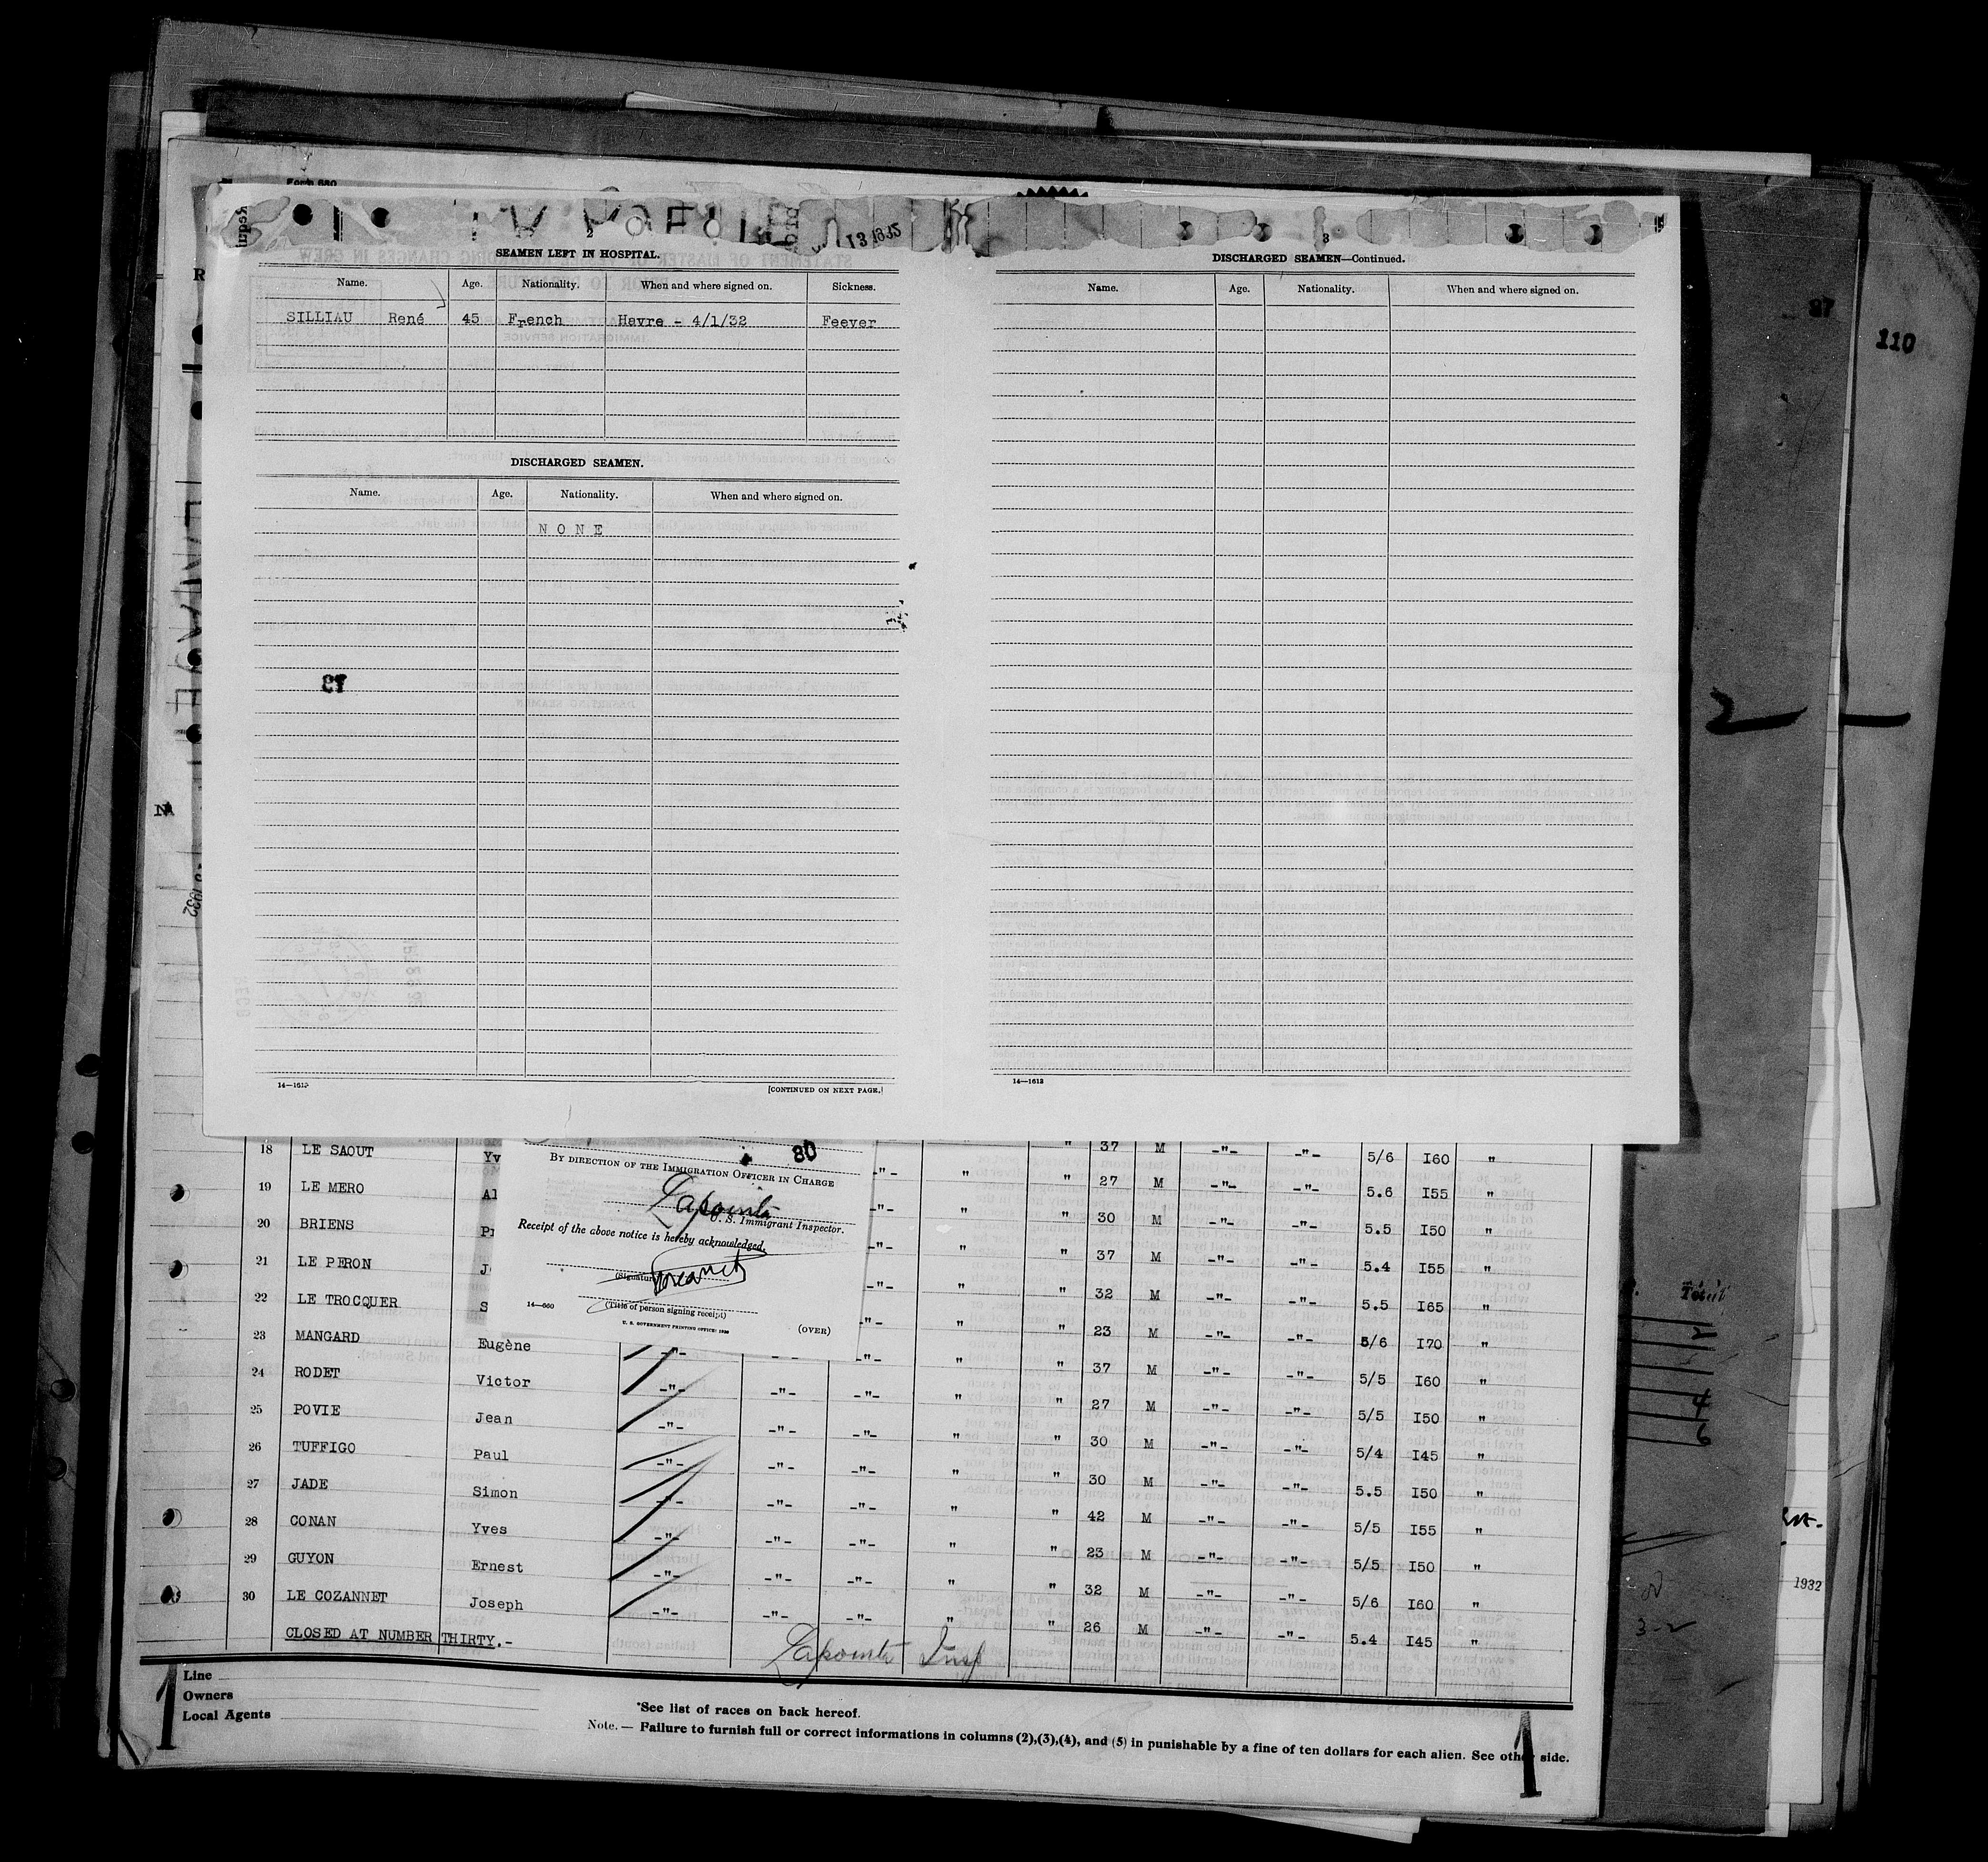 Form 680
13 1932
SEAMEN LEFT IN HOSPITAL.
Name. Age. Nationality. When and where signed on. Sickness.
SILLIAU René 45 French Havre - 4/1/32 Feever
DISCHARGED SEAMEN.
Name. Age. Nationality. When and where signed on.
N O N E
14—1613
[CONTINUED ON NEXT PAGE.]
3
DISCHARGED SEAMEN—Continued.
Name. Age. Nationality. When and where signed on.
14—1613
87
110
2
80
BY DIRECTION OF THE IMMIGRATION OFFICER IN CHARGE
Lapointe
U. S. Immigrant Inspector.
Receipt of the above notice is hereby acknowledged.
(Signature
(Title of person signing receipt)
14—660
U. S. GOVERNMENT PRINTING OFFICE: 1930
(OVER)
18 LE SAOUT Yv " " 37 M -"- -"- 5/6 I60 "
19 LE MERO Al -"- " " 27 M -"- -"- 5.6 I55 "
20 BRIENS -"- " " 30 M -"- -"- 5.5 I50 "
21 LE PERON J -"- " " 37 M -"- -"- 5.4 I55 "
22 LE TROCQUER S -"- " " 32 M -"- -"- 5.5 I65 "
23 MANGARD Eugène -"- -"- -"- " " 23 M -"- -"- 5/6 I70 "
24 RODET Victor -"- -"- -"- " " 37 M -"- -"- 5/5 I60 "
25 POVIE Jean -"- -"- -"- " " 27 M -"- -"- 5/5 I50 "
26 TUFFIGO Paul -"- -"- -"- " " 30 M -"- -"- 5/4 I45 "
27 JADE Simon -"- -"- -"- " " 30 M -"- -"- 5.5 I50 "
28 CONAN Yves -"- -"- -"- " " 42 M -"- -"- 5/5 I55 "
29 GUYON Ernest -"- -"- -"- " " 23 M -"- -"- 5/5 I50 "
30 LE COZANNET Joseph -"- -"- -"- " " 32 M -"- -"- 5/6 I60 "
" " 26 M -"- -"- 5.4 I45 "
CLOSED AT NUMBER THIRTY.-
Lapointe Insp
Line
Owners
Local Agents
*See list of races on back hereof.
Note. — Failure to furnish full or correct informations in columns (2),(3),(4), and (5) in punishable by a fine of ten dollars for each alien. See other side.
1
1
Total
1932